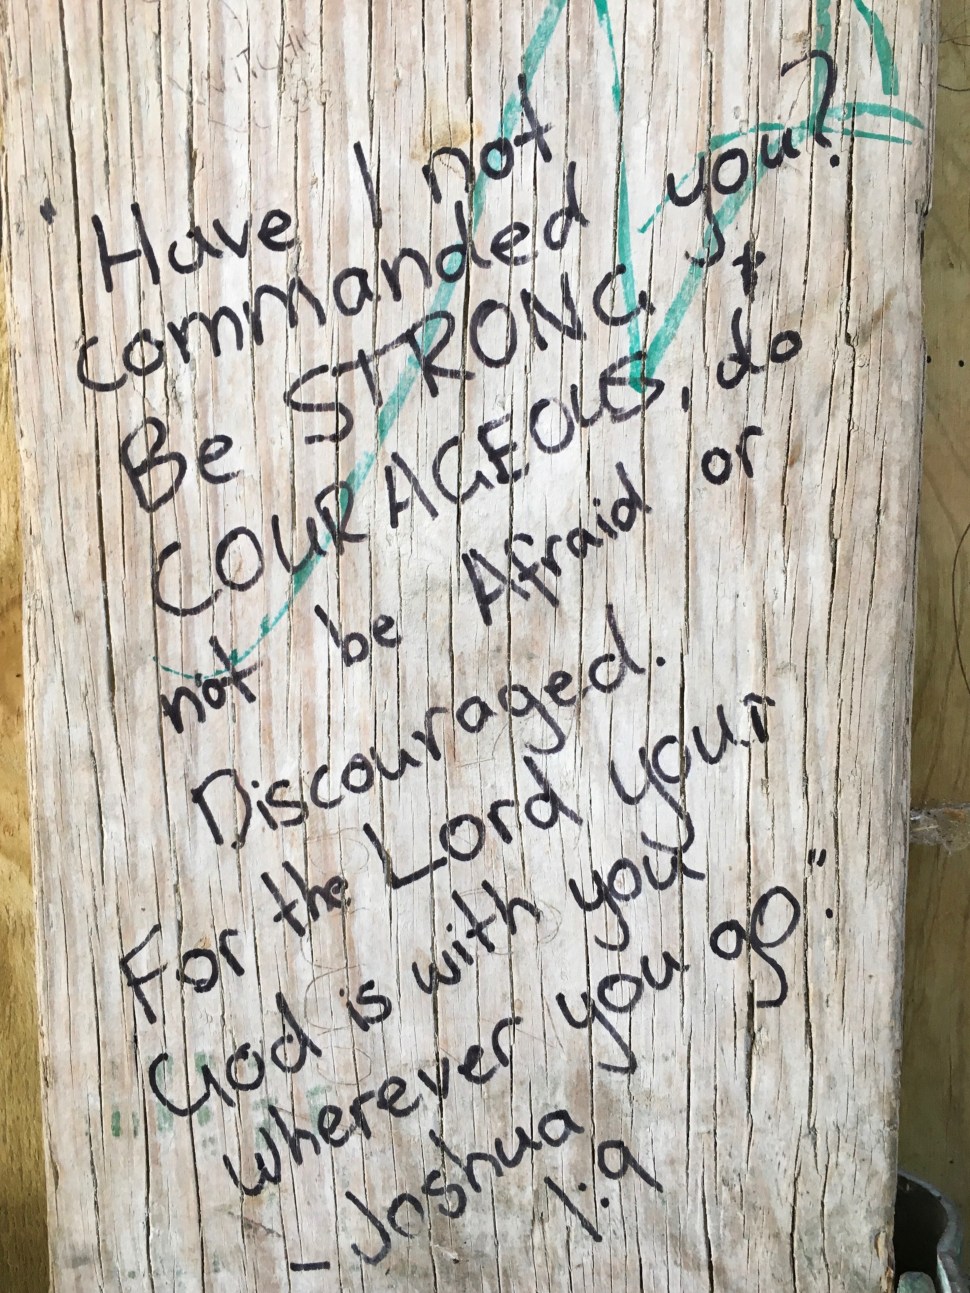 "Have I not
commanded you?
Be STRONG +
COURAGEOUS, do
not be Afraid or
Discouraged.
For the Lord your
God is with you
wherever you go."
- Joshua
1:9